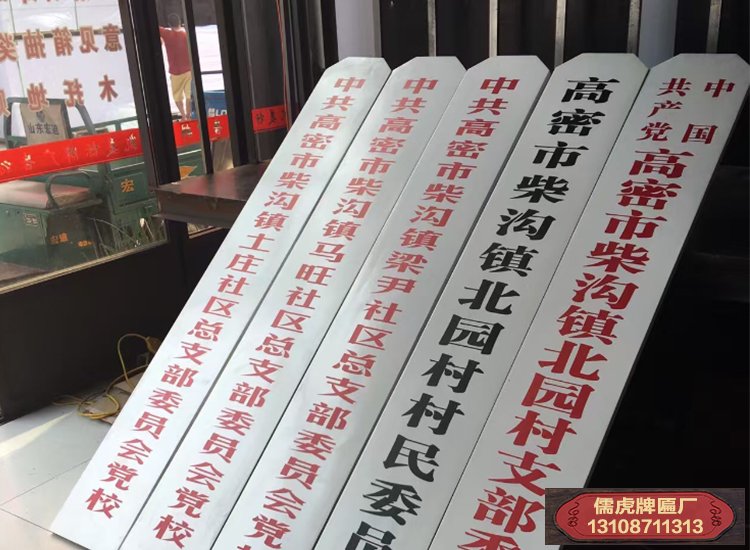 意见箱抽奖
木托地
中共高密市柴沟镇土庄社区总支部委员会党校
中共高密市柴沟镇马旺社区总支部委员会党校
中共高密市柴沟镇梁尹社区总支部委员会党
高密市柴沟镇北园村村民委员
中国
共产党
高密市柴沟镇北园村支部委
儒虎牌匾厂
13108711313